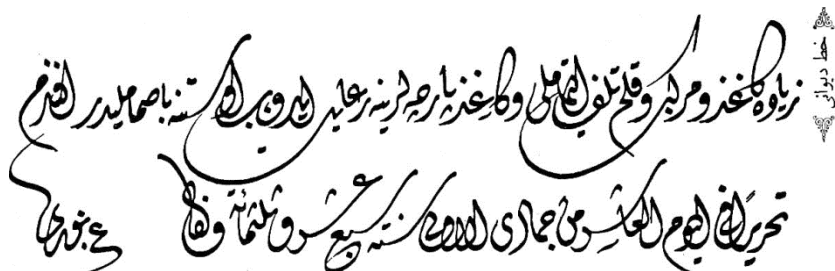 خط ديوانى
زياده كاغذ و مركب و قلم تلف ايتماملى و كاغذ پارچه لرينه رعايت ايدوب اوستنه باصماملیدر افندم
تحريراً فى اليوم العاشر من جمادى الاولى سنة سبع عشر و ثلثمائة و الف